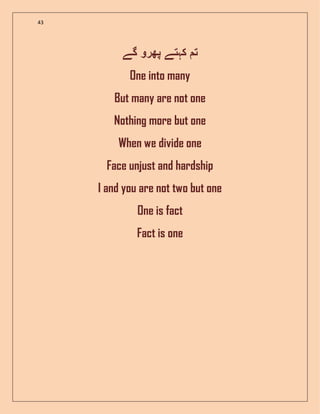 43
تم کہتے پھرو گے
One into many
But many are not one
Nothing more but one
When we divide one
Face unjust and hardship
I and you are not two but one
One is fact
Fact is one